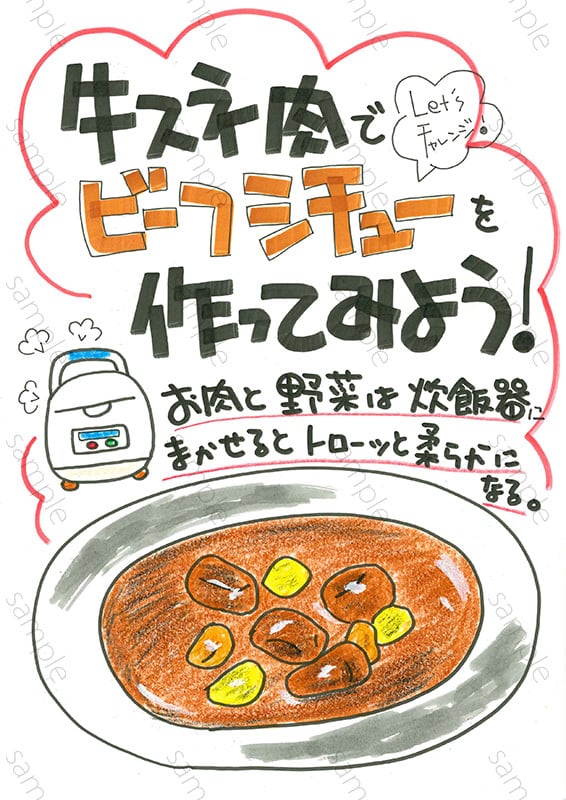 牛スネ肉で
Let's
チャレンジ!
ビーフシチューを
作ってみよう!
お肉と野菜は炊飯器に
まかせるとトローッと柔らかに
なる。
sample